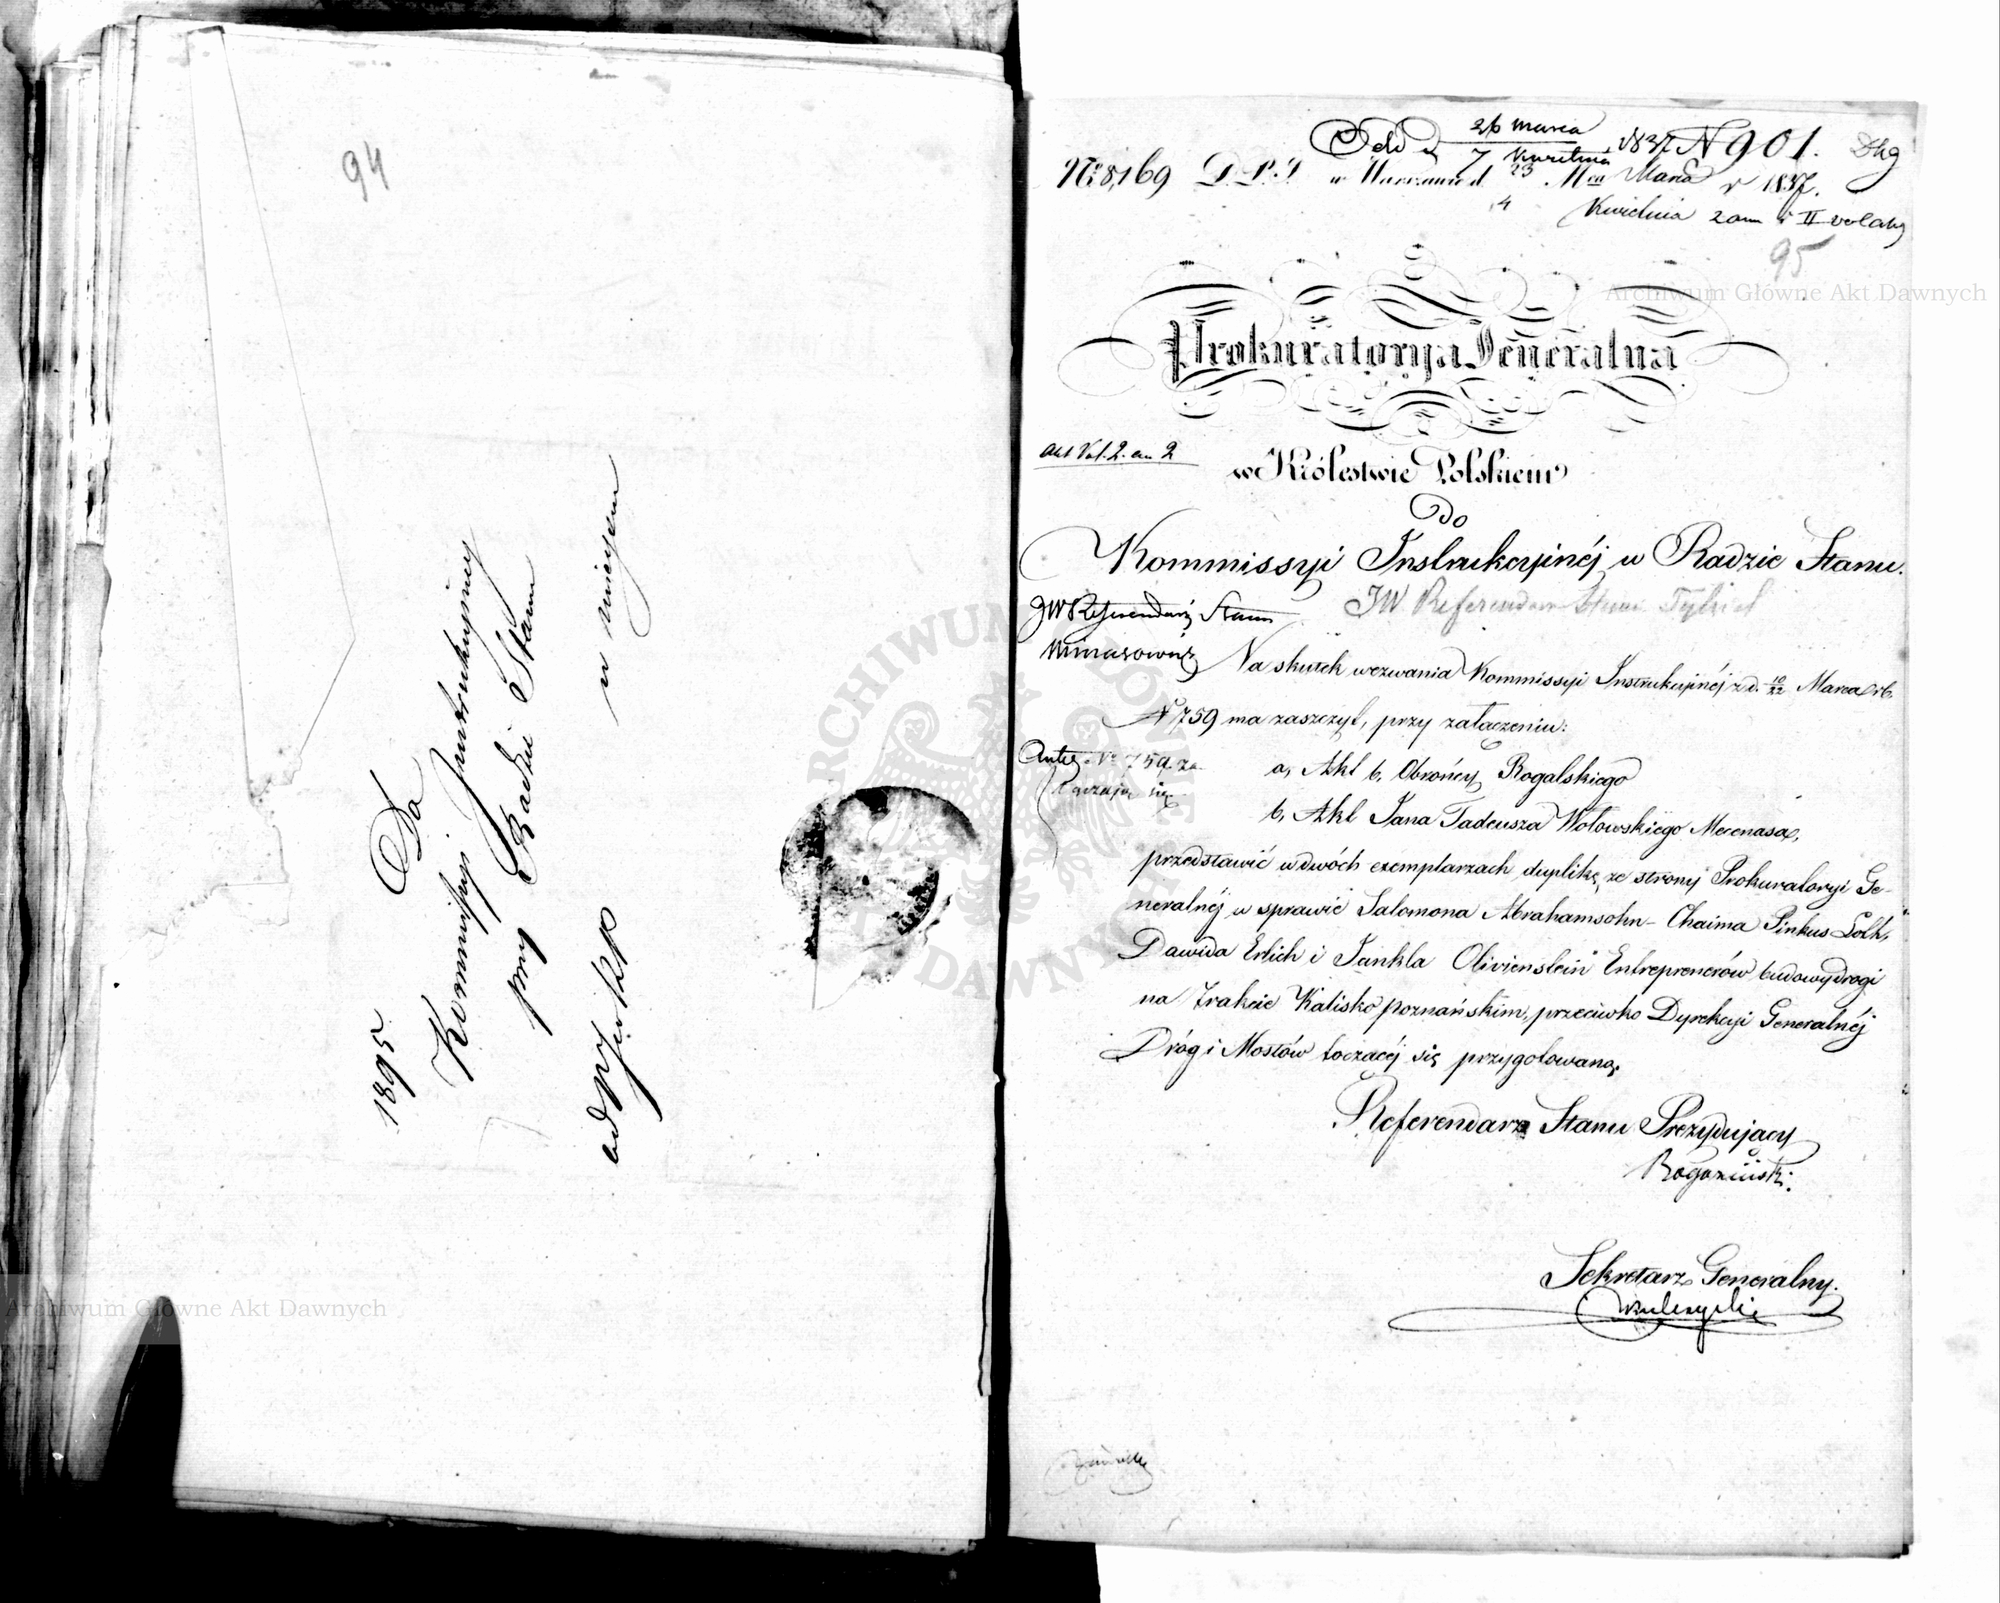 94
1895
Do
Kommissyi Instrukcyjney
przy Radzie Stanu
w miejscu
Odd d 26 marca 1837 N 901.
7 Kwietnia
No 8,169 D.P.I w Warszawie d. 23 Mca Marca r 1837.
4 Kwietnia 2 ann i II
95
Archiwum Główne Akt Dawnych
Prokuratorya Jeneralna
akt Vol. 2. an 2
w Królestwie Polskiem
Do
Kommissyi Instrukcyjnéj w Radzie Stanu.
JW Referendarz Stanu
JW. Referendarz Stanu
Na skutek wezwania Kommissyi Instrukcyjnéj z d. 10/22 Marca r b.
N 759 ma zaszczyt, przy załączeniu:
No 759 za
łączają się
a, Akt b. Obrońcy Rogalskiego
b, Akt Jana Tadeusza Wołowskiego Mecenasa,
przedstawić w dwóch exemplarzach duplikę ze strony Prokuratoryi Ge-
neralnéj w sprawie Salomona Abrahamsohn - Chaima Pinkus
Dawida Erlich i Jankla Olivienstein Entreprenerów budowy drogi
na Trakcie Kalisko poznańskim, przeciwko Dyrekcyi Generalnéj
Dróg i Mostów toczącéj się przygotowaną.
Referendarz Stanu Prezydujący
Rogoziński.
Sekretarz Generalny.
ARCHIWUM GŁÓWNE AKT DAWNYCH
Archiwum Główne Akt Dawnych